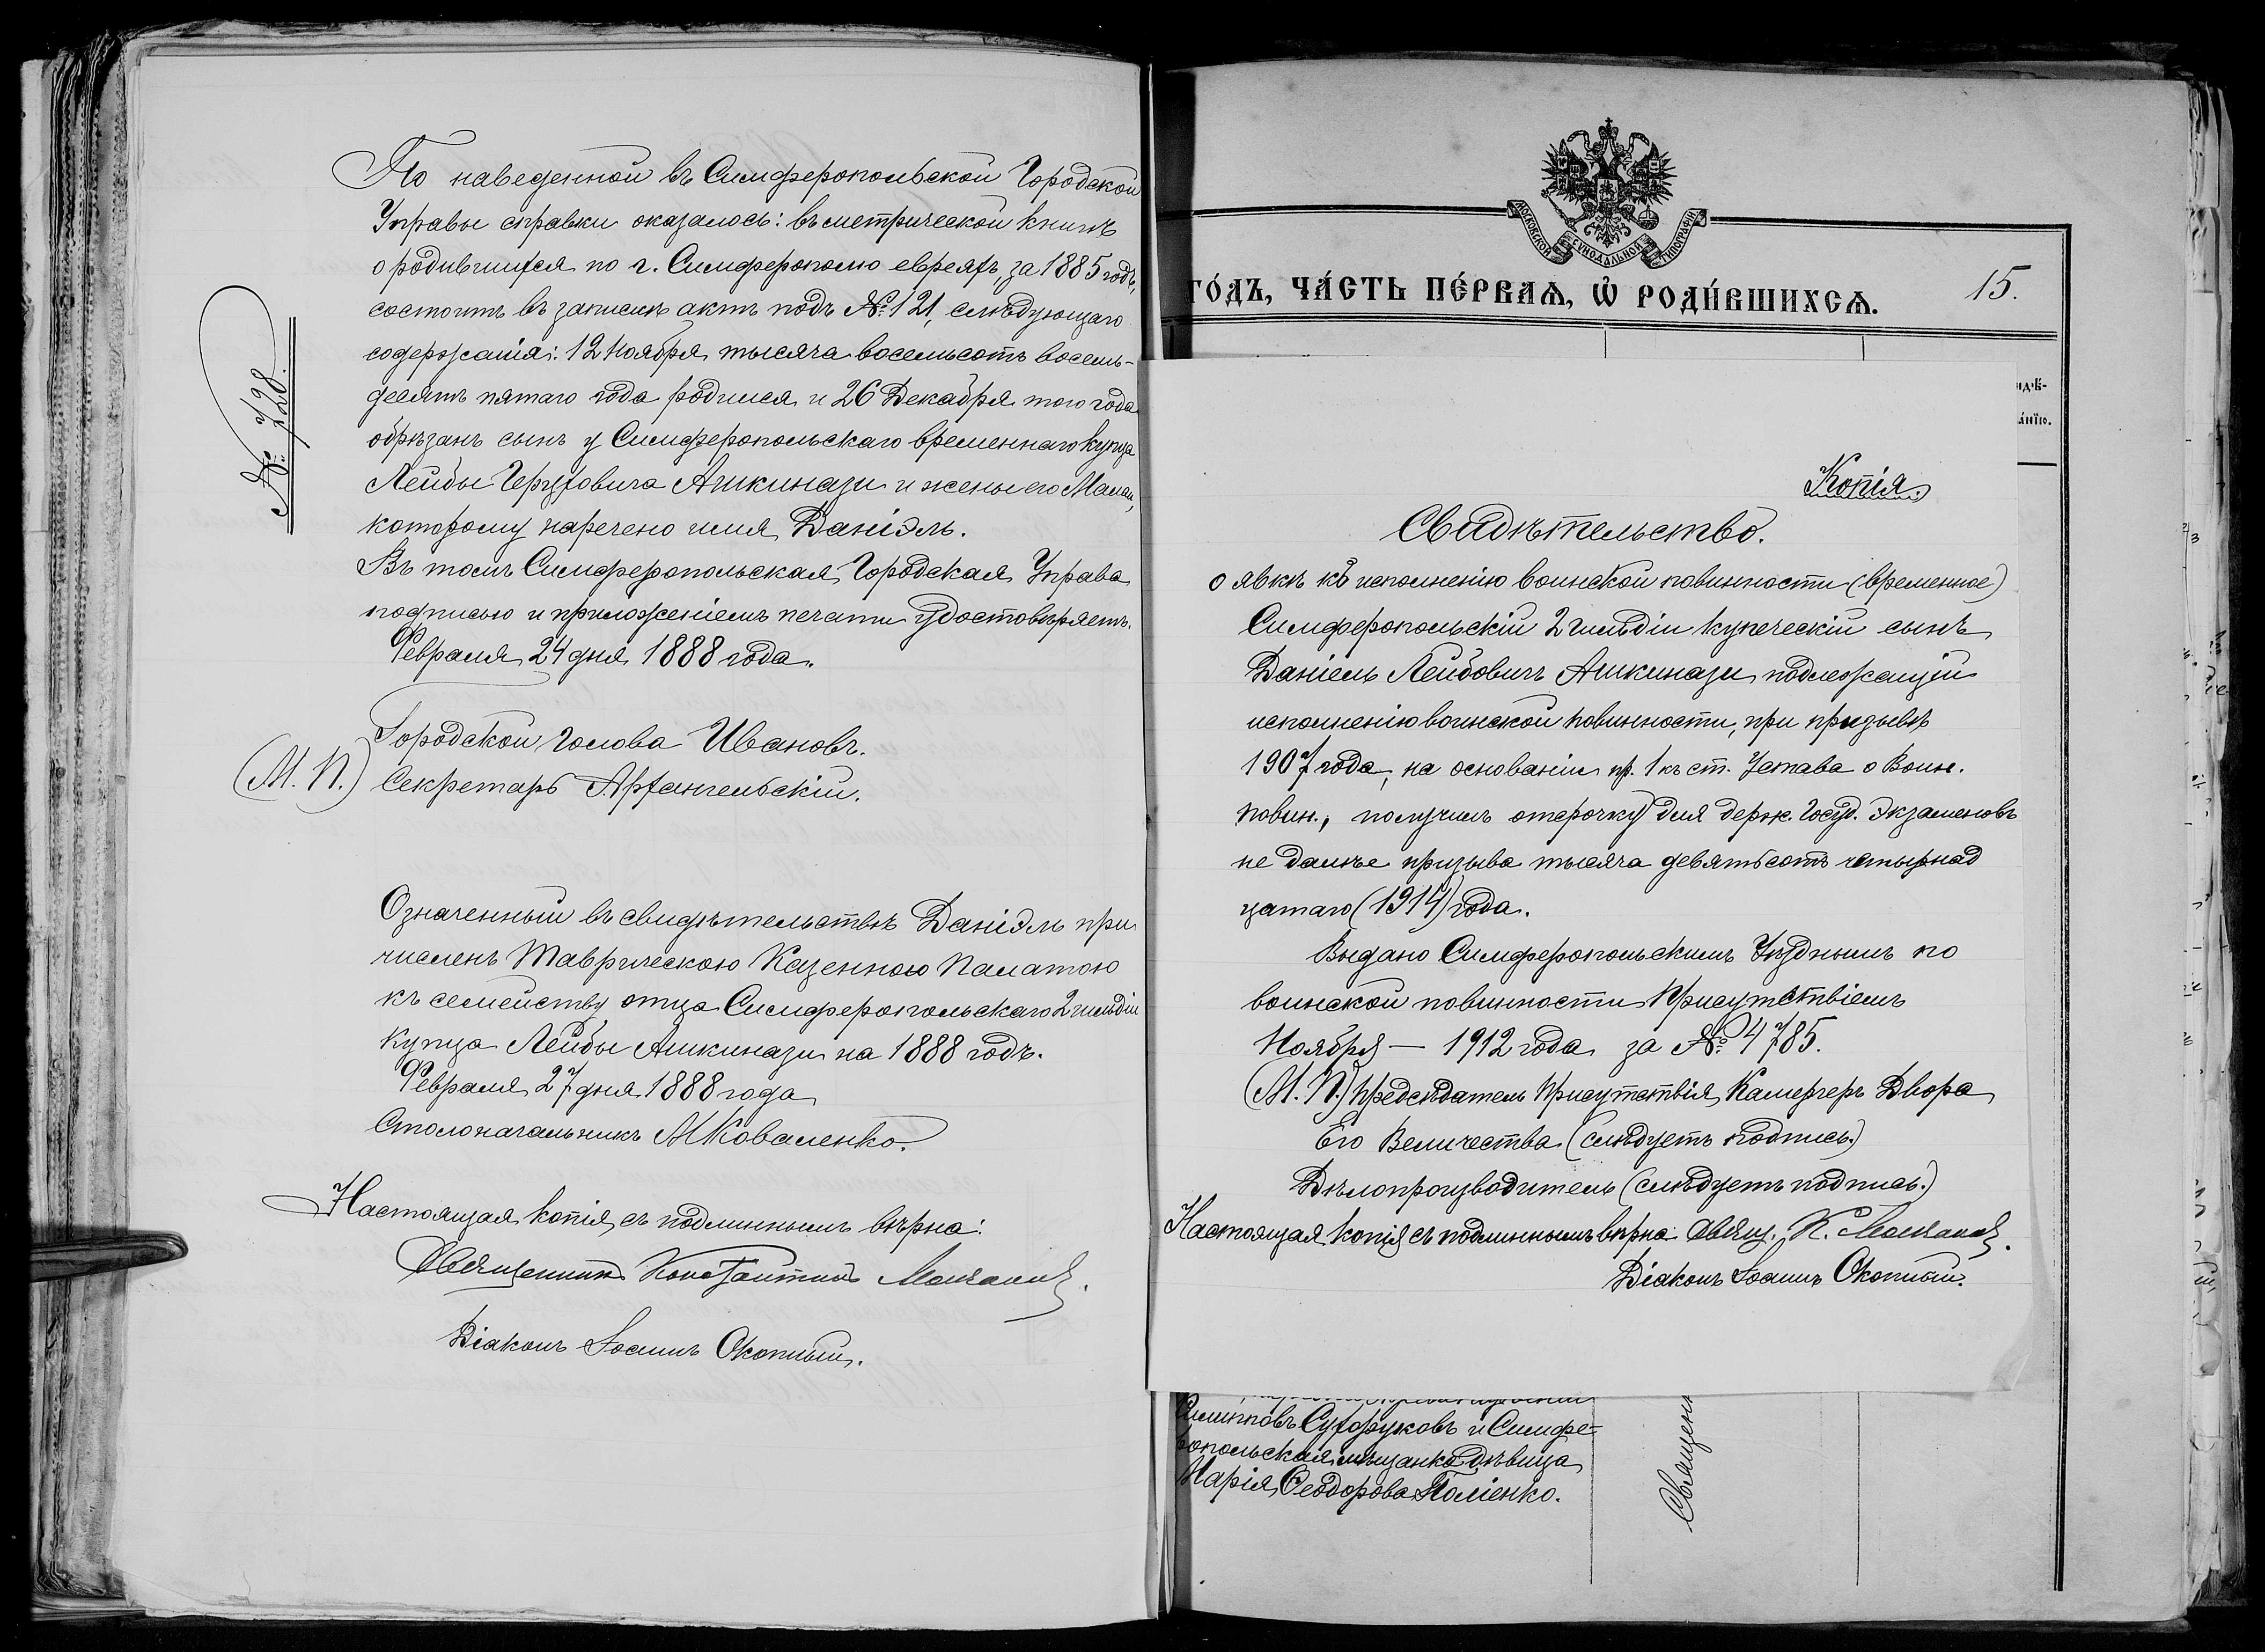 По наведенной въ Симферопольской Городской
Управы справки оказалось: въ метрической книгѣ
о родившихся по г. Симферополю евреяхъ, за 1885 годъ,
состоитъ въ записикъ актъ подъ № 121, слѣдующаго
содержанія: 12 Ноября тысяча восемьсотъ восемь-
десятъ пятаго года родился и 26 Декабря того года
обрѣзанъ сынъ у Симферопольскаго временнаго купца
Лейбы Герцховича Ашкинази и жены его Малки,
которому наречено имя Даніэль.
Въ томъ Симферопольская Городская Управа
подписью и приложеніемъ печати удостовѣряетъ.
Февраля 24 дня 1888 года.
№ 728.
Городской Голова Ивановъ.
(М. П.) Секретарь Архангельскій.
Означенный въ свидѣтельствѣ Даніэль при
численъ Таврическою Казенною Палатою
къ семейству отца Симферопольскаго 2 гильдіи
купца Лейбы Ашкинази на 1888 годъ.
Февраля 27 дня 1888 года
Столоначальникъ М Коваленко.
Настоящая копія съ подлиннымъ вѣрна:
Священникъ Константинъ
Діаконъ Іоаннъ Окопный.
МОСКОВСКОЙ СУНОДАЛЬНОЙ ТИПОГРАФІИ
ГО́ДЪ, ЧА́СТЬ ПЕ́РВАѦ, Ѽ РОДИ́ВШИХСѦ.
15.
Копія.
Свидѣтельство.
о явкѣ къ исполненію воинской повинности (временное)
Симферопольскій 2 гильдіи купеческій сынъ
Даніель Лейбовичъ Ашкинази подлежащій
исполненію воинской повинности, при призывѣ
1907 года, на основаніи пр. 1 къ ст. Устава о Воин.
повин., получилъ отсрочку для держ. Госуд. Экзаменовъ
не далѣе призыва тысяча девятьсотъ четырнад
цатаго (1914) года.
Выдано Симферопольскимъ Уѣзднымъ по
воинской повинности Присутствіемъ
Ноября — 1912 года за № 4785.
(М. П.) Предсѣдатель Присутствія, Камергеръ Двора
Его Величества (слѣдуетъ подпись.)
Дѣлопроизводитель (слѣдуетъ подпись.)
Настоящая копія съ подлиннымъ вѣрна Свящ. К.
Діаконъ Іоаннъ Окопный.
Сухоруковъ и Симфе-
ропольская мѣщанка дѣвица
Марія Ѳеодорова Поліенко.
Священ